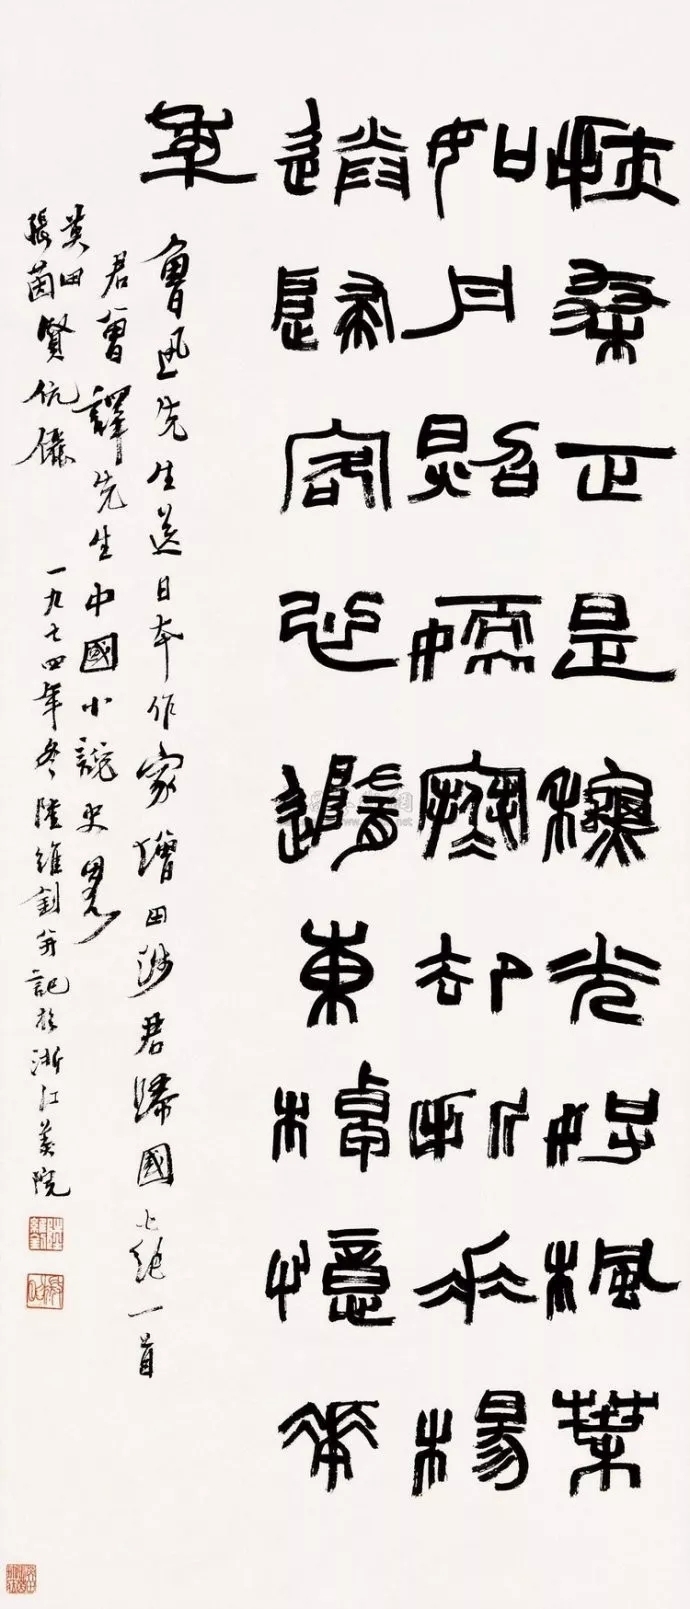 扶桑正是穐光好楓葉
如丹照嫩寒却折垂楊
送歸客心隨東棹憶華
年
魯迅先生送日本作家增田涉君歸國七絕一首
君曾譯先生中國小說史畧
田
張茵賢伉儷
一九七四年冬陸維釗并記於浙江美院